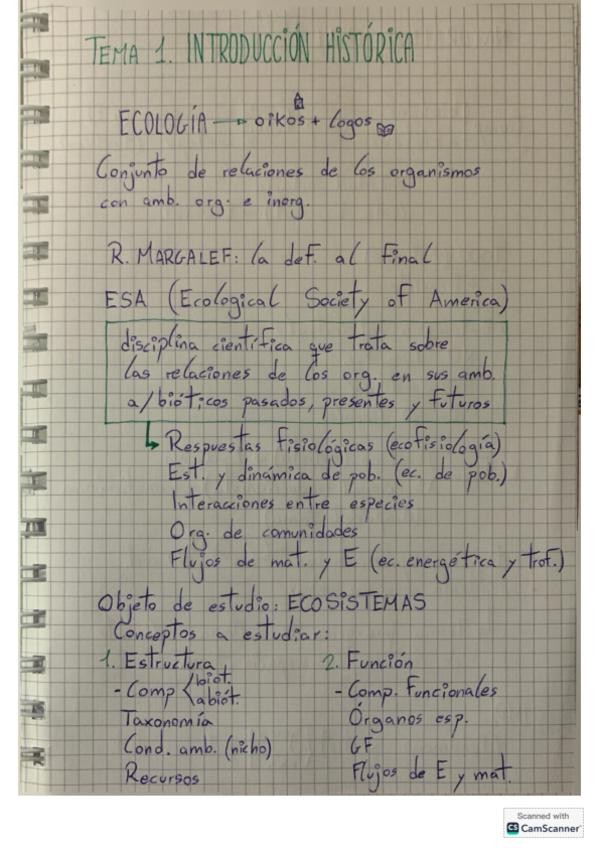 TEMA 1. INTRODUCCIÓN HISTÓRICA
ECOLOGÍA → oikos + logos
Conjunto de relaciones de los organismos
con amb. org. e inorg.
R. MARGALEF: la def. al final
ESA (Ecological Society of America)
disciplina científica que trata sobre
las relaciones de los org. en sus amb.
a/bióticos pasados, presentes y futuros
Respuestas fisiológicas (ecofisiología)
Est. y dinámica de pob. (ec. de pob.)
Interacciones entre especies
Org. de comunidades
Flujos de mat. y E (ec. energética y trof.)
Objeto de estudio: ECOSISTEMAS
Conceptos a estudiar:
1. Estructura
- Comp < biót.
abiót.
Taxonomía
Cond. amb. (nicho)
Recursos
2. Función
- Comp. Funcionales
Órganos esp.
GF
Flujos de E y mat.
Scanned with
CS CamScanner